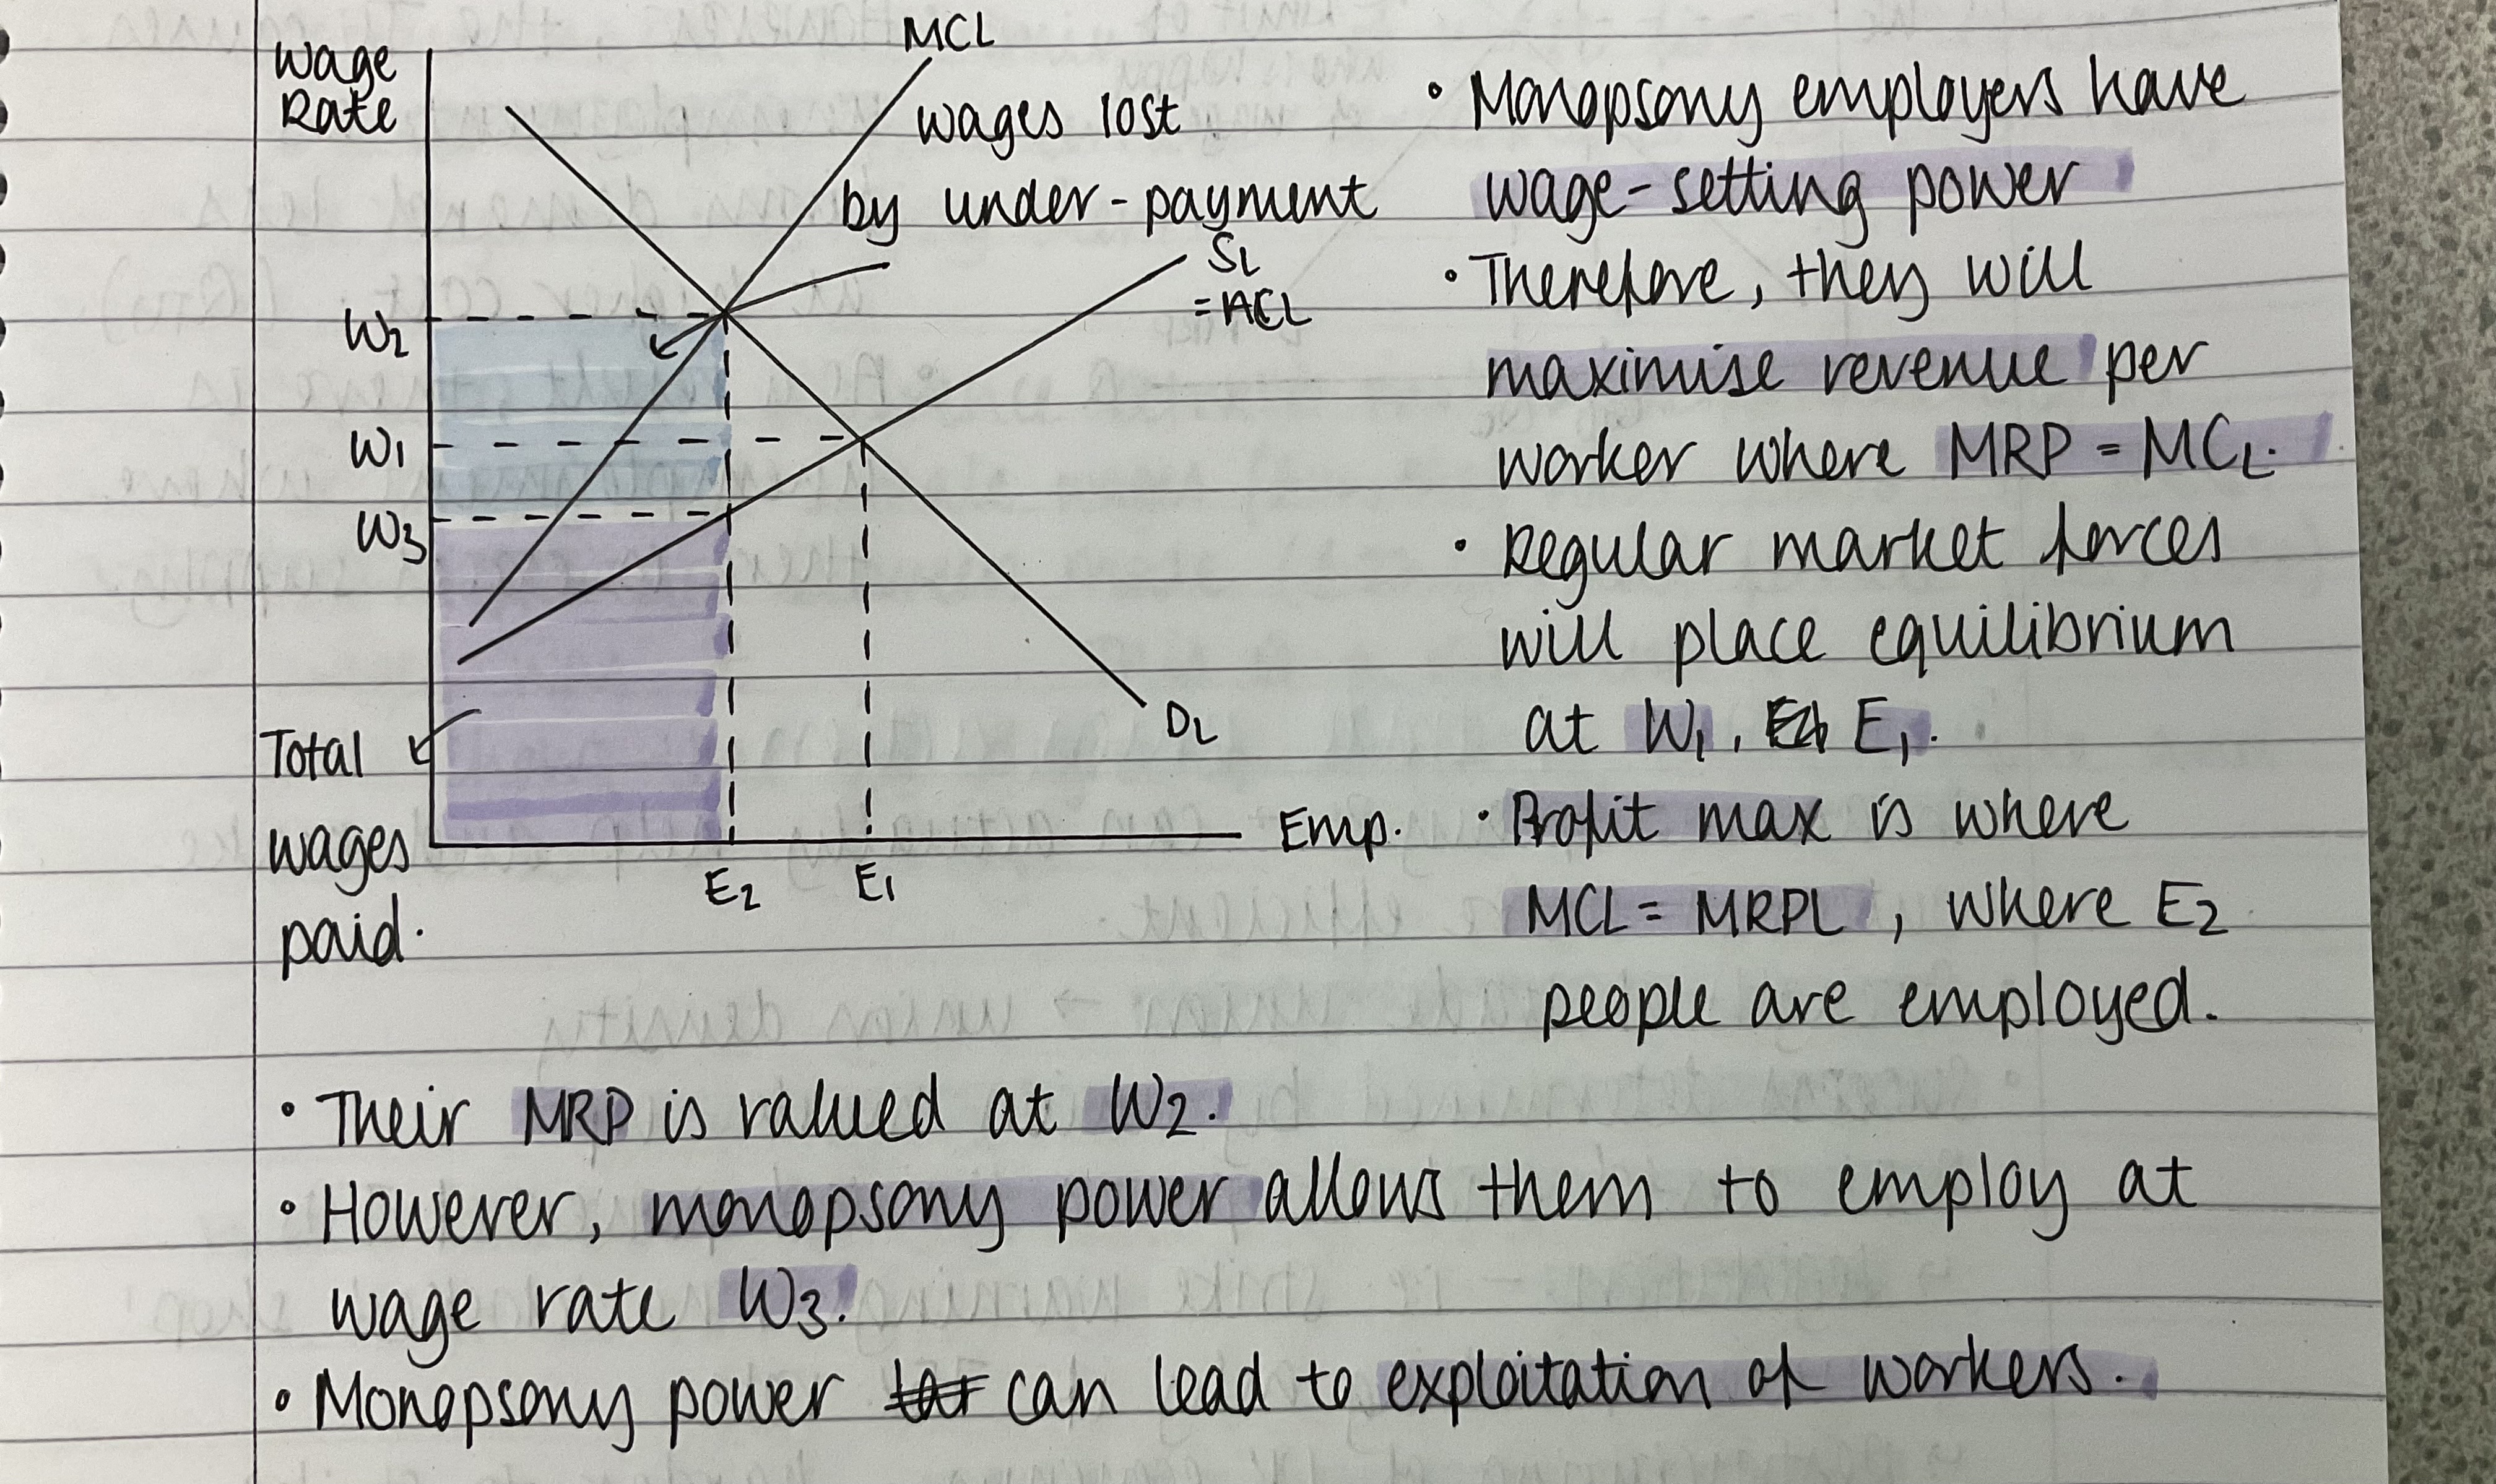 MCL
Wage
Rate
wages lost
by under-payment
SL
=ACL
W2
W1
W3
DL
Total
wages
paid.
Emp.
E2
E1
• Monopsony employers have
wage-setting power
• Therefore, they will
maximise revenue per
worker where MRP = MCL.
• Regular market forces
will place equilibrium
at W1, E1.
• Profit max is where
MCL = MRPL, where E2
people are employed.
• Their MRP is valued at W2.
• However, monopsony power allows them to employ at
wage rate W3.
• Monopsony power can lead to exploitation of workers.